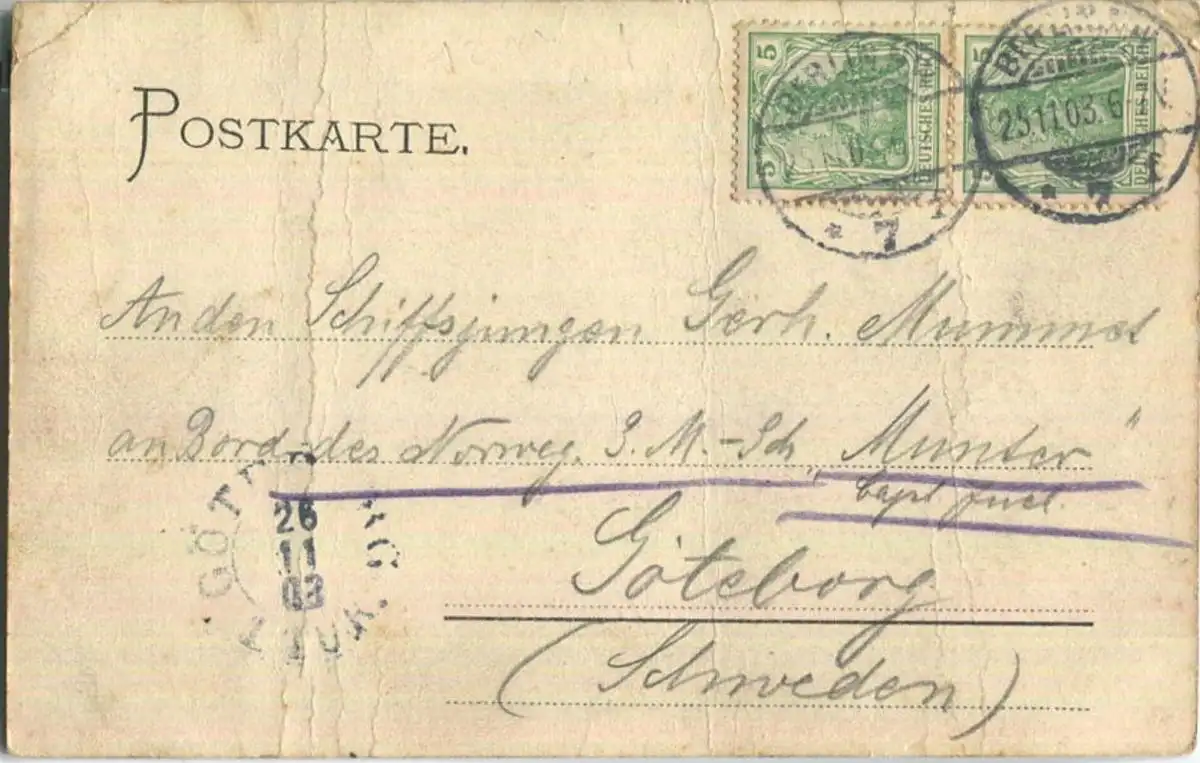 POSTKARTE.
5 5 DEUTSCHES REICH
5 DEUTSCHES REICH
BERLIN
* 7
BERLIN
25.11.03.6-
* 7
An den Schiffsjungen Gerh.
an Bord des Norweg. S. M.-Sch „Munter“
Capt Juel
Göteborg
(Schweden)
GÖTEBORG
26
11
03